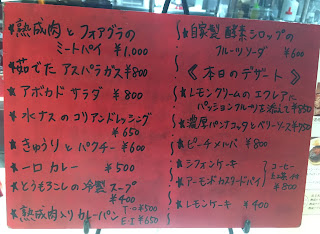 ★熟成肉とフォアグラの
ミートパイ ¥1,000
★茹でた アスパラガス ¥800
★アボカド サラダ ¥800
★水ナスのコリアンドレッシング
¥650
★きゅうりとパクチー ¥600
★一口カレー ¥500
★とうもろこしの冷製スープ
¥400
★熟成肉入りカレーパン
★自家製 酵素シロップの
フルーツソーダ ¥600
《本日のデザート》
★レモンクリームのエクレアに
パッションフルーツを添えて
★濃厚パンナコッタとベリーソース
★ピーチメルバ ¥800
★シフォンケーキ
★アーモンドカスタードパイ
コーヒー
¥800
★レモンケーキ ¥400